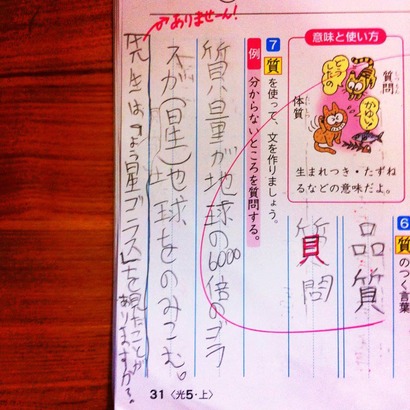 意味と使い方
質問
どうしたの
かゆい!
体質
生まれつき・たずね
るなどの意味だよ。
6 質のつく言葉
品質
質問
7 質を使って、文を作りましょう。
例 分からないところを質問する。
質量が地球の6000倍のゴラ
スが(星)地球をのみこむ。
先生は「よう星ゴラス」を見たことがありますか?
ありません!
31〈光5・上〉